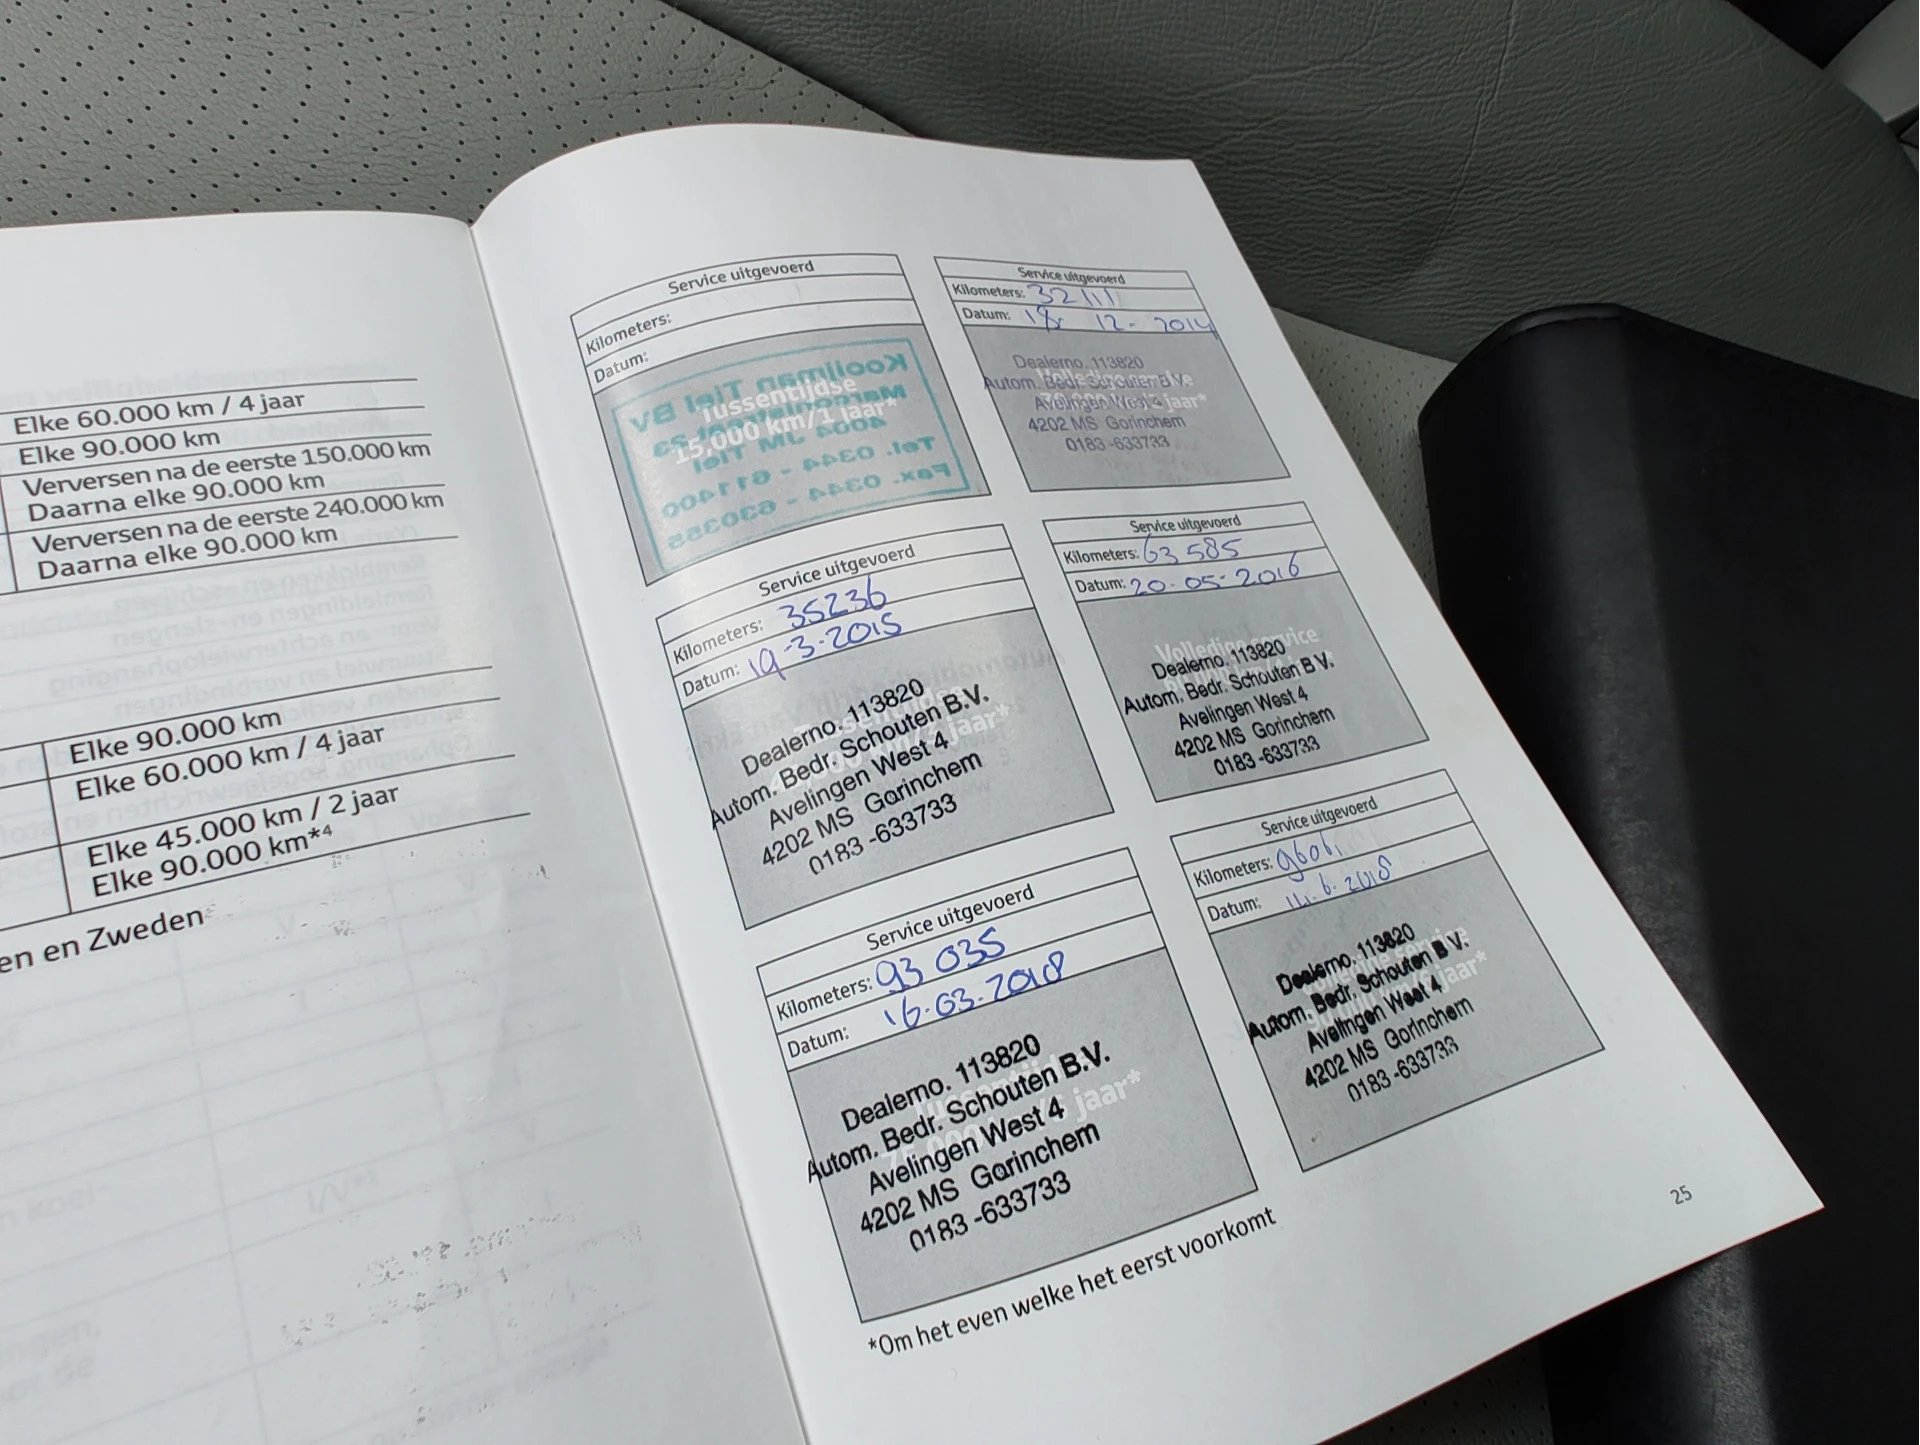 Elke 60.000 km / 4 jaar
Elke 90.000 km
Verversen na de eerste 150.000 km
Daarna elke 90.000 km
Verversen na de eerste 240.000 km
Daarna elke 90.000 km
Elke 90.000 km
Elke 60.000 km / 4 jaar
Elke 45.000 km / 2 jaar
Elke 90.000 km*4
en en Zweden
Service uitgevoerd
Kilometers:
Datum:
Tussentijdse
15,000 km/1 jaar*
Kooijman Tiel BV
4004 JM Tiel
Tel. 0344 - 611400
Fax. 0344 - 630355
Service uitgevoerd
Kilometers: 32111
Datum: 18 12. 2014
Dealerno. 113820
Autom. Bedr. Schouten B.V.
Avelingen West 4
jaar*
4202 MS Gorinchem
0183 -633733
Service uitgevoerd
Kilometers: 35236
Datum: 19-3-2015
Dealerno. 113820
Autom. Bedr. Schouten B.V.
jaar*
Avelingen West 4
4202 MS Gorinchem
0183 -633733
Service uitgevoerd
Kilometers: 63 585
Datum: 20-05-2016
Volledige service
Dealerno. 113820
Autom. Bedr. Schouten B.V.
Avelingen West 4
4202 MS Gorinchem
0183 -633733
Service uitgevoerd
Kilometers: 93 035
Datum: 16-03-2018
Dealerno. 113820
Autom. Bedr. Schouten B.V.
jaar*
Avelingen West 4
4202 MS Gorinchem
0183 -633733
Service uitgevoerd
Kilometers:
Datum: 14.6.2018
Dealerno. 113820
Autom. Bedr. Schouten B.V.
jaar*
Avelingen West 4
4202 MS Gorinchem
0183 -633733
*Om het even welke het eerst voorkomt
25